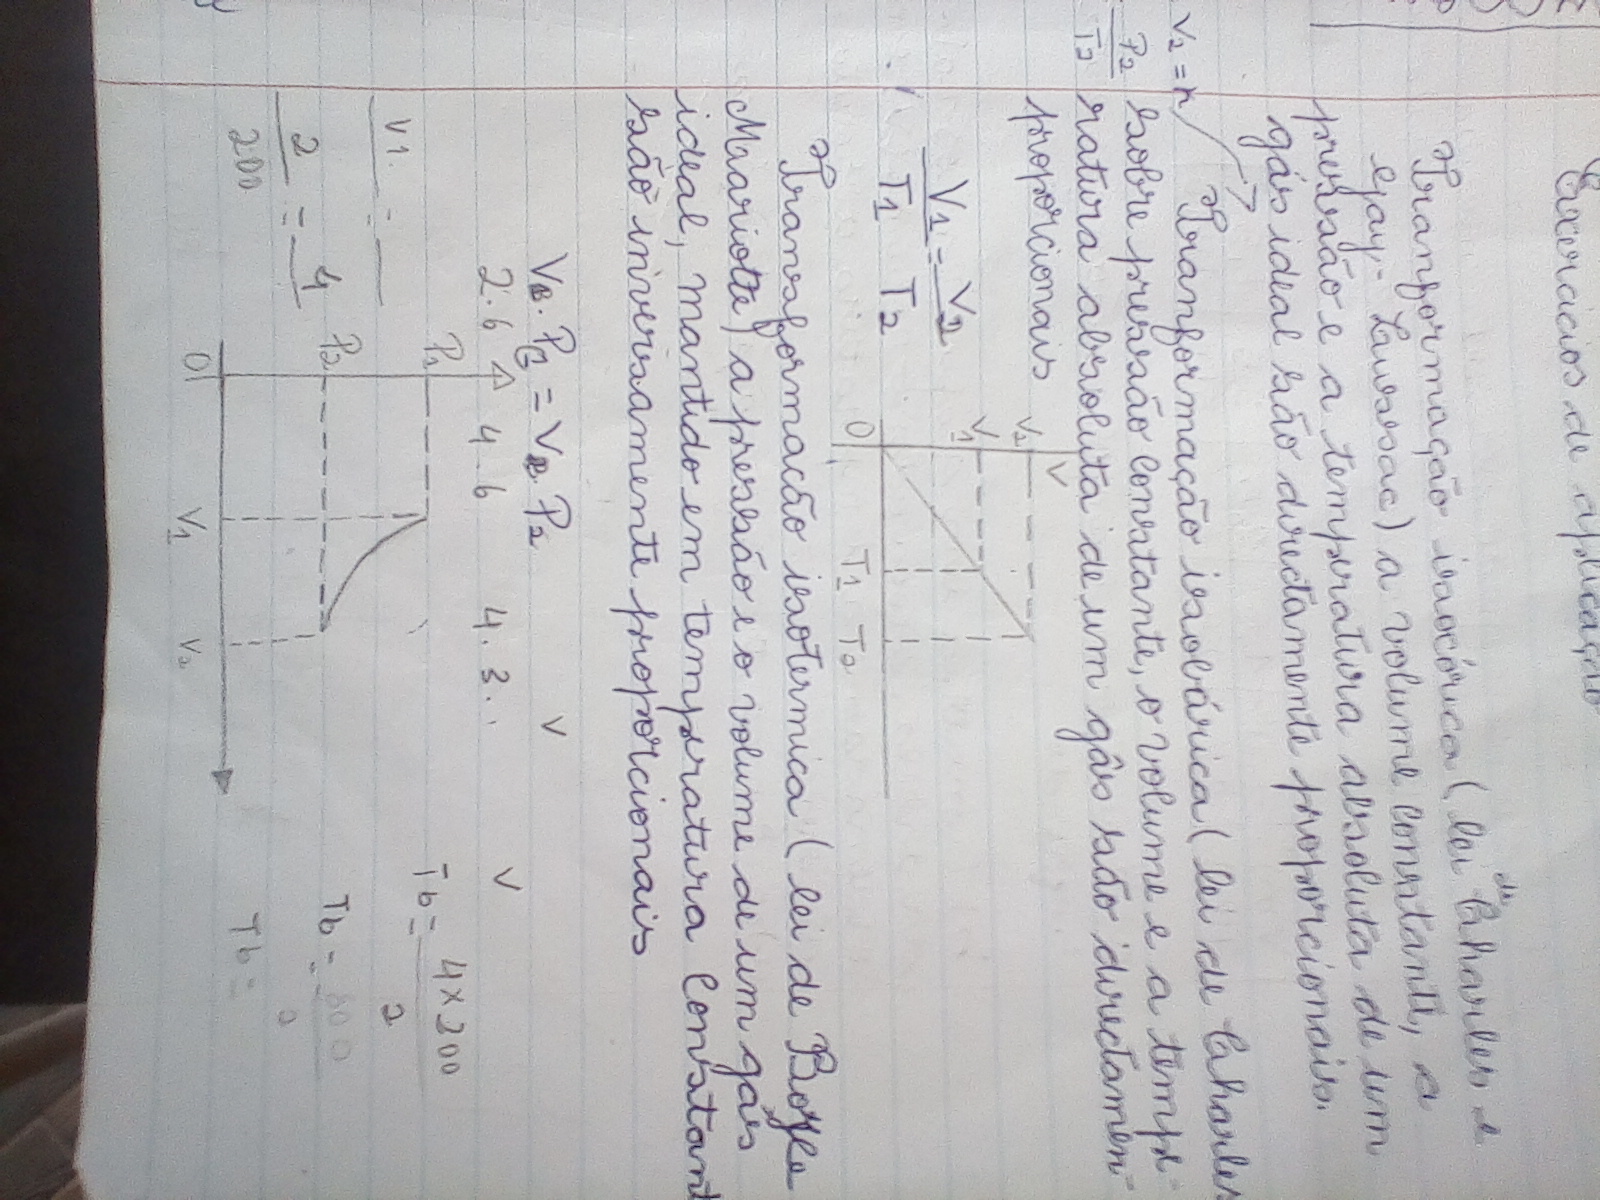 Exercicios de aplicação
Tranformação isocórica (lei de Charles e
Gay-Lussac) a volume constante, a
pressão e a temperatura absoluta de um
gás ideal são directamente proporcionais.
V2 = K
Tranformação isobárica (lei de Charles
P2
T2
sobre pressão constante, o volume e a tempe-
ratura absoluta de um gás são directamen-
proporcionais
V1 = V2
T1 T2
V
V2
V1
0 T1 T2
Transformação isotermica (lei de Boyle
Mariotte) a pressão e o volume de um gás
ideal, mantido em temperatura constant
são inversamente proporcionais
V1. P1 = V2. P2 V
2.6 4.6 4.3. V
P1
P2
0 V1 V2
V1. =
2 = 4
200
Tb = 4x200
2
Tb = 800
2
Tb =